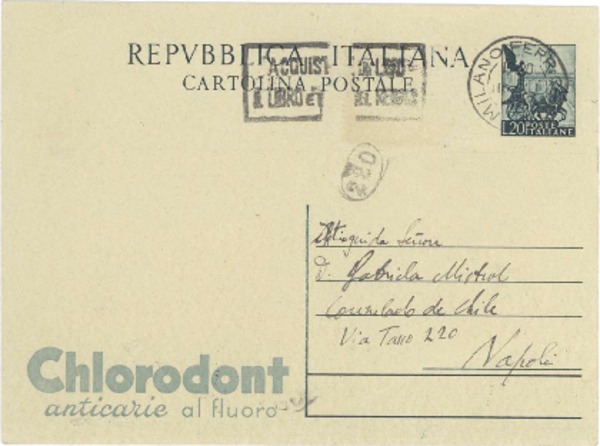 REPVBBLICA ITALIANA
CARTOLINA POSTALE
ACQUIST UN LIBRO
IL LIBRO È
MILANO FERR
L.20 POSTE ITALIANE
Distinguida Señora
D. Gabriela Mistral
Consulado de Chile
Via Tasso 220
Napoli
Chlorodont
anticarie al fluoro